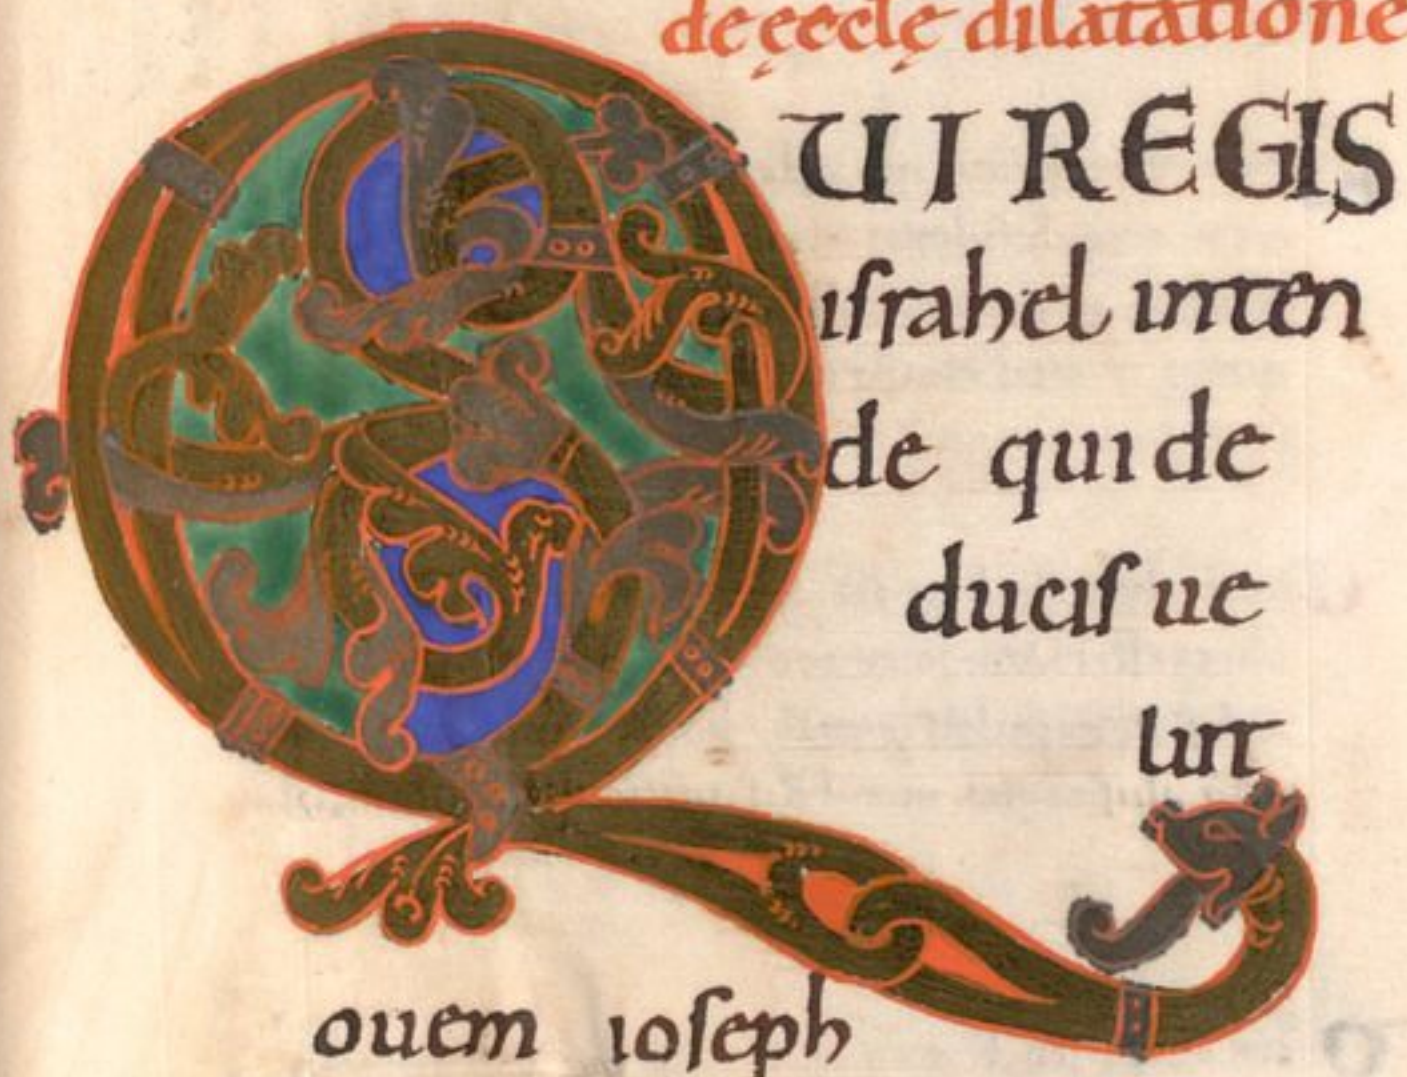 de ęcclę dilatatione
QUI REGIS
israhel inten
de qui de
ducis ue
lut
ouem ioseph